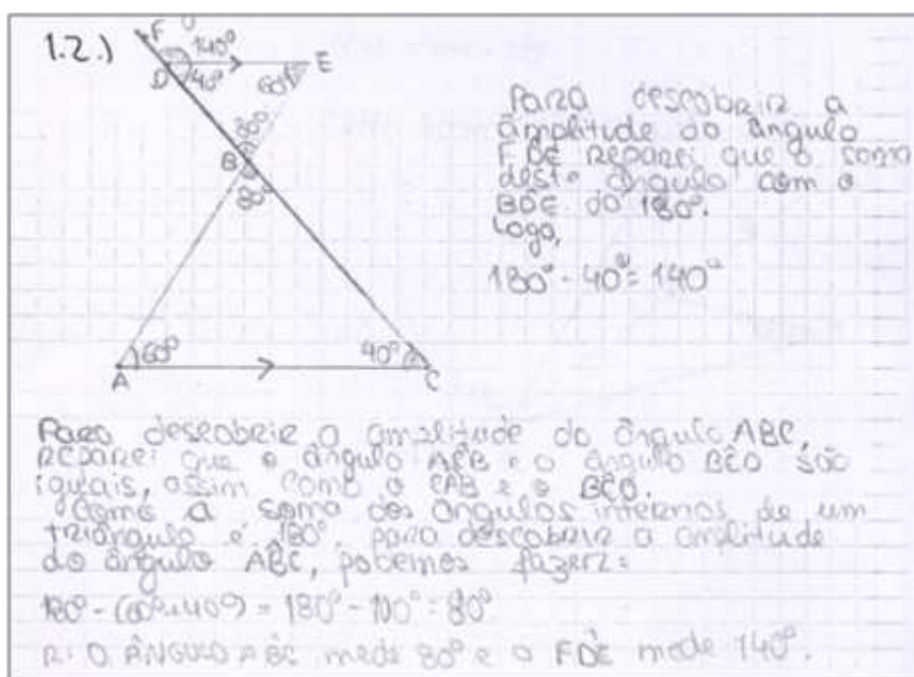 1.2.)
F
140°
D
40°
60°
E
80°
B
80°
60°
40°
A
C
Para descobrir a
amplitude do ângulo
FDE reparei que a soma
deste ângulo com o
BDE dá 180°.
Logo,
180° - 40° = 140°
Para descobrir a amplitude do ângulo ABC,
reparei que o ângulo ACB e o ângulo são
iguais, assim como o CAB e o
Como a soma dos ângulos internos de um
triângulo é 180°, para descobrir a amplitude
do ângulo ABC, podemos fazer:
180° - (60°+40°) = 180° - 100° = 80°
R: O ÂNGULO ABC mede 80° e o FDE mede 140°.